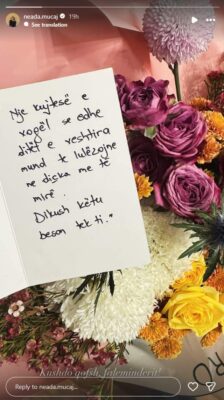 neada.mucaj 19h
See translation
Një kujtesë e
vogël se edhe
ditët e veshtira
mund të lulëzojnë
në diska më të
mirë.
Dikush këtu
beson tek ti."
Kushdo qofsh, faleminderit!
Reply to neada.mucaj...